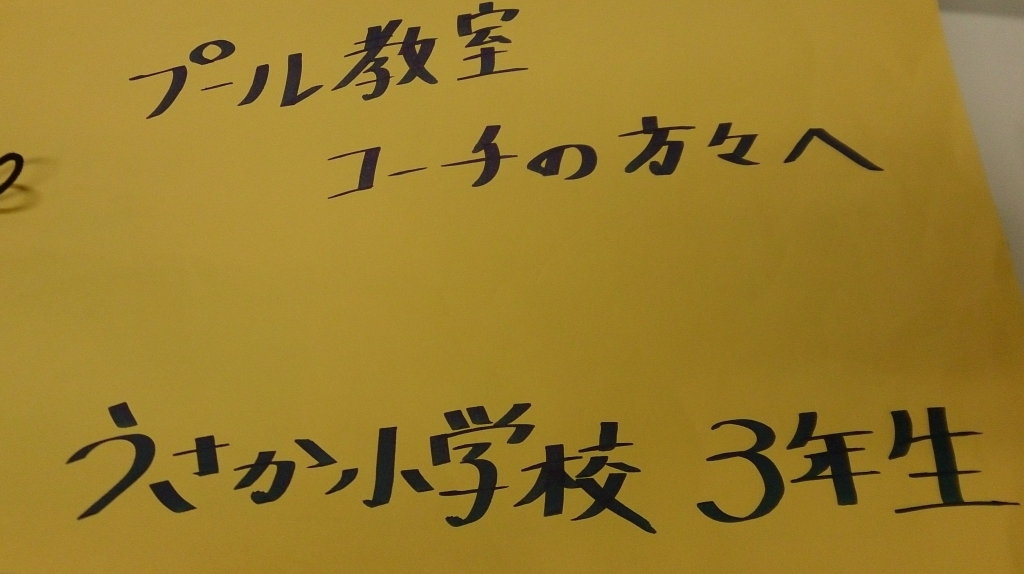 プール教室
コーチの方々へ
うさか小学校 3年生